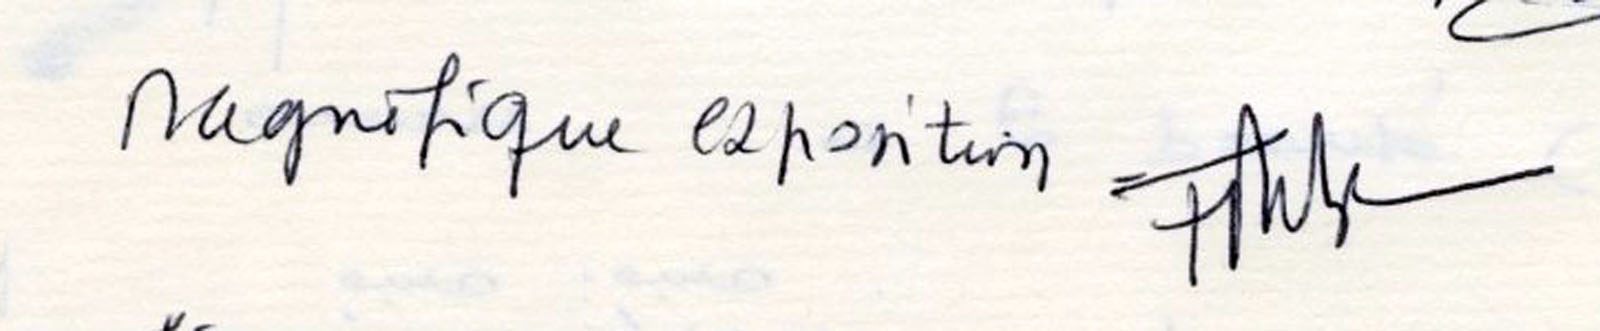 Magnifique exposition